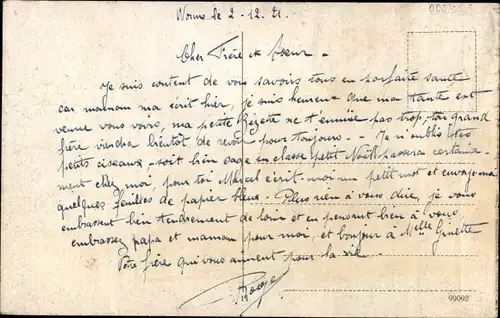 Worms le 2-12.21.
Cher Frère et Soeur -
Je suis content de vous savoirs tous en parfaite santé
car maman ma écrit hier, je suis heureux que ma tante est
venue vous voirs, ma petite Gizette ne t'ennuie pas trop, ton grand
frère viendra bientôt de revoir pour toujours - Je n'oublis
petits ciseaux - soit bien sage en classe petit Noël passera certaine-
ment chez moi, pour toi Marcel écrit-moi un petit mot et envoye-moi
quelques feuilles de papier bleue. Plus rien à vous dire, je vous
embrassent bien tendrement de loin et en pensant bien à vous
embrassez papa et maman pour moi, et bonjour à Melle Ginette
Votre frère qui vous aiment pour la vie.
Roger
99098